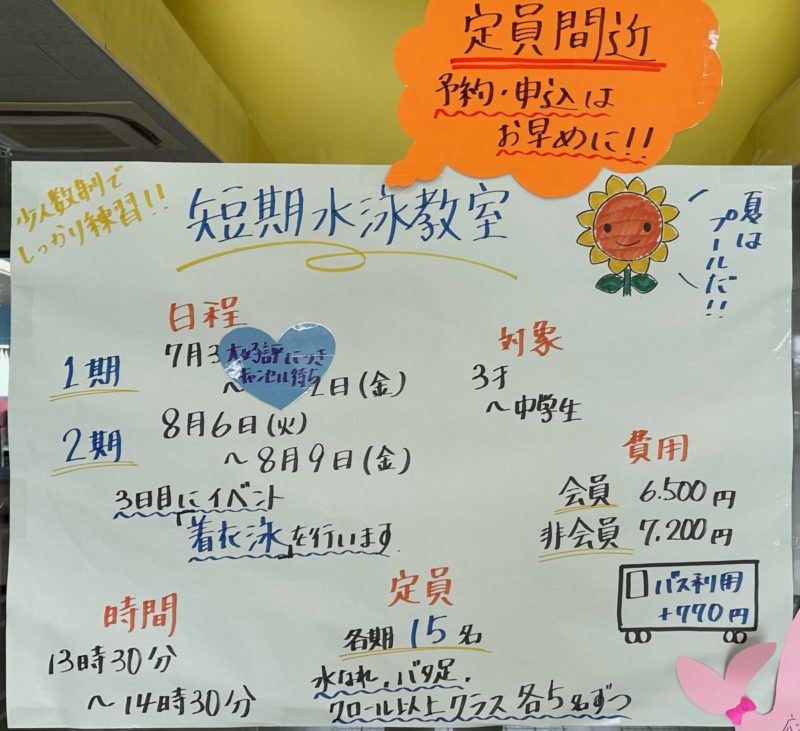 定員間近
予約・申込は
お早めに!!
少人数制で
しっかり練習!!
短期水泳教室
夏は
プールだ!!
日程
1期 7月3
大好評につき
キャンセル待ち
〜 2日(金)
2期 8月6日(火)
〜8月9日(金)
3日目にイベント
「着衣泳」を行います
対象
3才
〜中学生
費用
会員 6.500円
非会員 7.200円
バス利用
+770円
時間
13時30分
〜14時30分
定員
各期15名
水なれ.バタ足.
クロール以上クラス 各5名ずつ